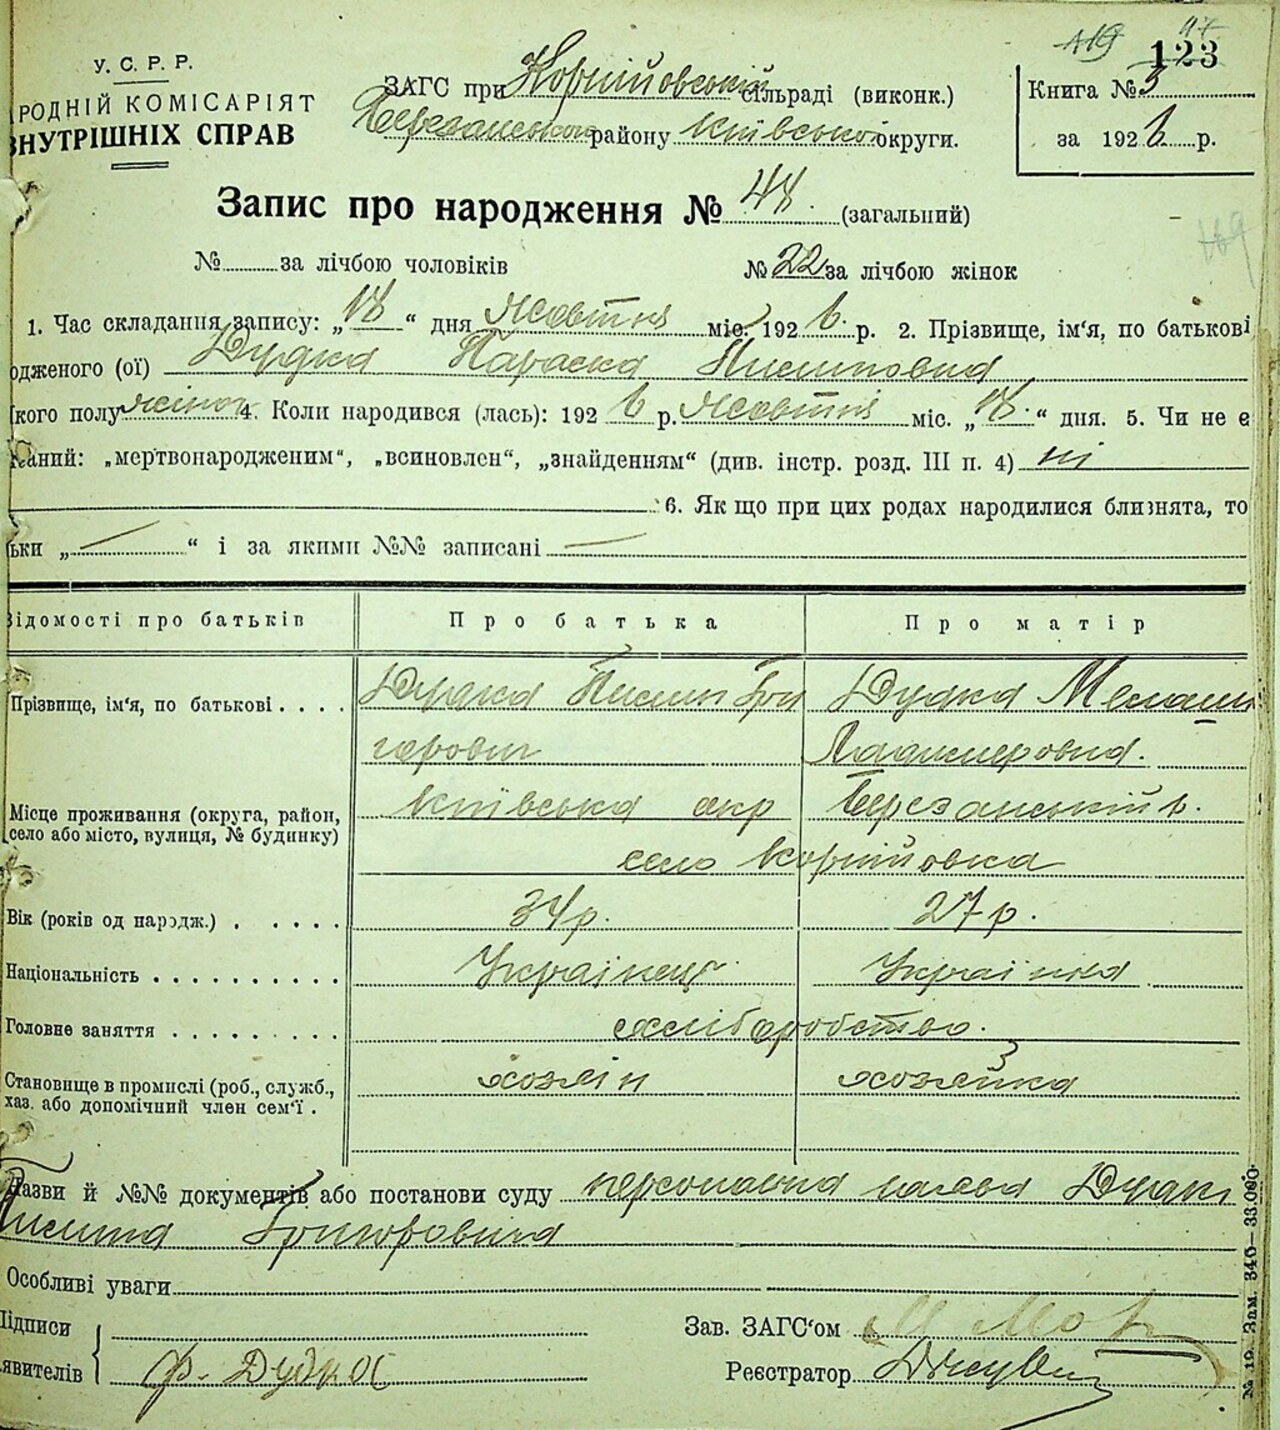 119 117
123
У. С. Р. Р.
РОДНІЙ КОМІСАРІЯТ
ВНУТРІШНІХ СПРАВ
ЗАГС при Корніїовській сільраді (виконк.)
Березанського району Київської округи.
Книга № 3
за 1926 р.
Запис про народження № 48. (загальний)
169
№ за лічбою чоловіків № 22 за лічбою жінок
1. Час складання запису: „18“ дня Жовтня міс. 1926. р. 2. Прізвище, ім'я, по батькові
одженого (ої) Дудка Параска Пилиповна
кого полу жіноч 4. Коли народився (лась): 1926 р. Жовтня міс. „18.“ дня. 5. Чи не є
каний: „мертвонародженим“, „всиновлен“, „знайденням“ (див. інстр. розд. III п. 4) ні
6. Як що при цих родах народилися близнята, то
ьки „—“ і за якими №№ записані —
Відомості про батьків Про батька Про матір
Прізвище, ім'я, по батькові . . . . Дудка Пилип Гри Дудка Мелашк
горович Владимеровна.
Місце проживання (округа, район, Київська окр Березанський р.
село або місто, вулиця, № будинку)
село Корніїовка
Вік (років од народж.) . . . . . 34р. 27р.
Національність . . . . . . . . . . Українець Українка
Головне заняття . . . . . . . . . хліборобство.
Становище в промислі (роб., служб., хозяін хозяйка
хаз. або допомічний член сем'ї .
Назви й №№ документів або постанови суду персональна заява Дудки
Пилипа Григоровича
Особливі уваги
Підписи Зав. ЗАГС'ом
явителів Ф. Дудка Реєстратор
№ 19. Зам. 346—33.000